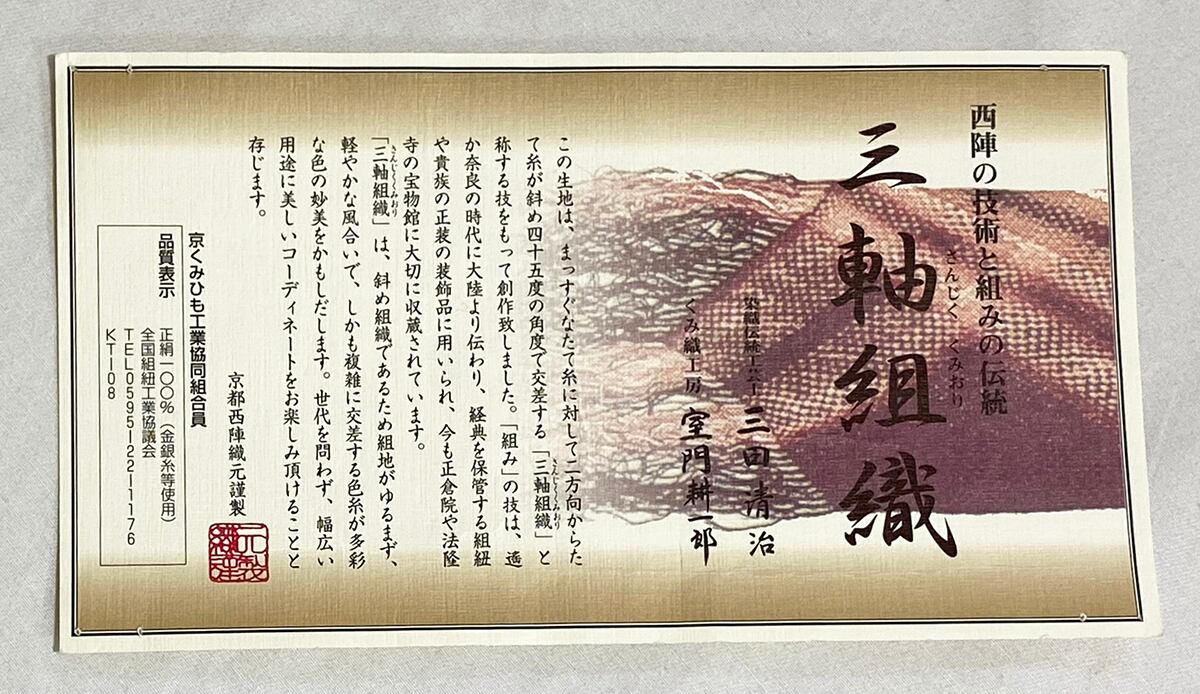 西陣の技術と組みの伝統
三軸組織
さんじく くみおり
染織伝統工芸士 三田清治
くみ織工房 室門耕一郎
この生地は、まっすぐなたて糸に対して二方向からた
て糸が斜め四十五度の角度で交差する「三軸組織」と
さんじくくみおり
称する技をもって創作致しました。「組み」の技は、遙
か奈良の時代に大陸より伝わり、経典を保管する組紐
や貴族の正装の装飾品に用いられ、今も正倉院や法隆
寺の宝物館に大切に収蔵されています。
「三軸組織」は、斜め組織であるため組地がゆるまず、
さんじくくみおり
軽やかな風合いで、しかも複雑に交差する色糸が多彩
な色の妙美をかもしだします。世代を問わず、幅広い
用途に美しいコーディネートをお楽しみ頂けることと
存じます。
京都西陣織元謹製
京くみひも工業協同組合員
品質表示
正絹一〇〇%（金銀糸等使用）
全国組紐工業協議会
TEL0595-22-1176
KT-08